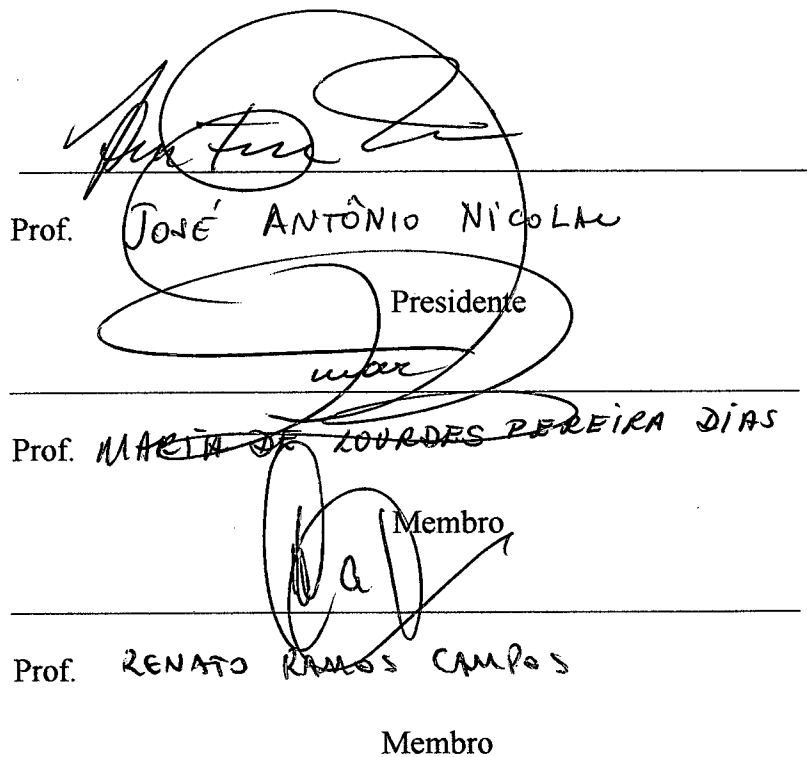 Prof. JOSÉ ANTÔNIO NICOLAU
Presidente
Prof. MARIA DE LOURDES PEREIRA DIAS
Membro
Prof. RENATO RAMOS CAMPOS
Membro